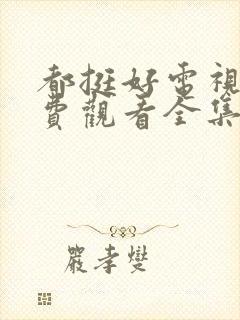 都挺好電視
費觀看全集
嚴孝燮